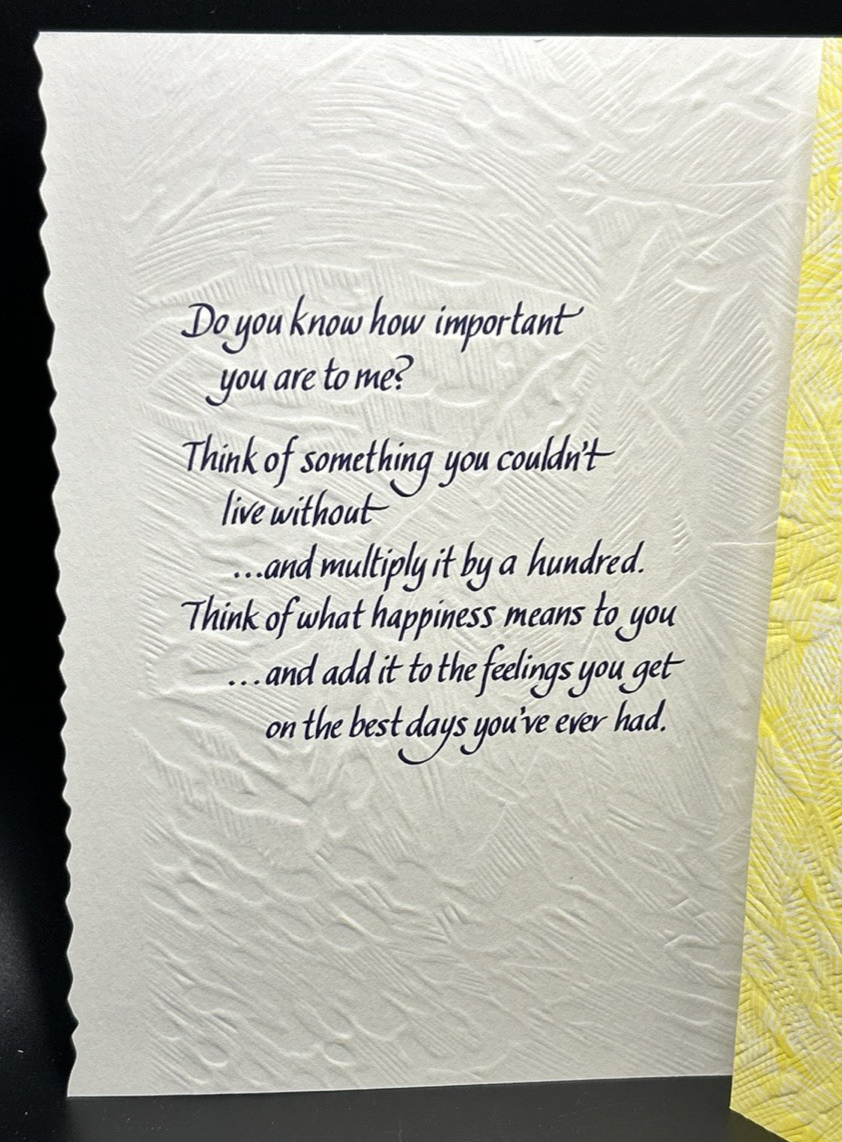 Do you know how important
you are to me?
Think of something you couldn't
live without
...and multiply it by a hundred.
Think of what happiness means to you
...and add it to the feelings you get
on the best days you've ever had.